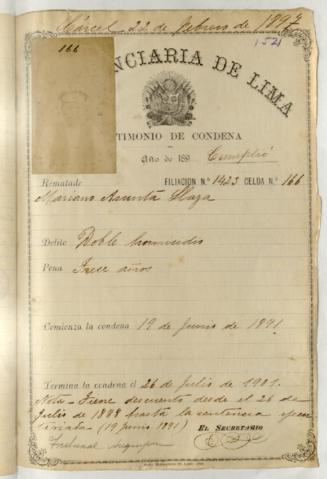 Cárcel 22 de febrero de 1897
1521
166
NCIARIA DE LIMA
TIMONIO DE CONDENA
Año de 189 Cumplió
Rematado FILIACION N.° 1423 CELDA N.° 166
Mariano Asunta Llaza
Delito Doble homicidio
Pena Trece años
Comienza la condena 19 de Junio de 1891.
Termina la condena el 26 de Julio de 1901.
Nota - Tiene descuento desde el 26 de
Julio de 1888 hasta la sentencia ejecu
toriada (19 Junio 1891)
EL SECRETARIO
Tribunal Arequipa